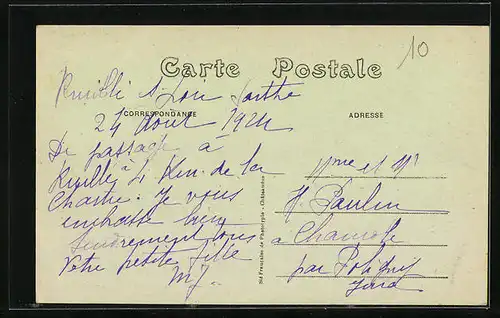 10
Carte Postale
CORRESPONDANCE
ADRESSE
Ruillé s/ Loir Sarthe
24 août 1924
De passage à
Ruillé à 4 Km. de la
Chartre. Je vous
embrasse bien
tendrement tous
Votre petite fille
MJ.
Mme et Mr
H. Paulin
à Chamole
par Poligny
Jura
Sté Française de Phototypie - Châteaudun